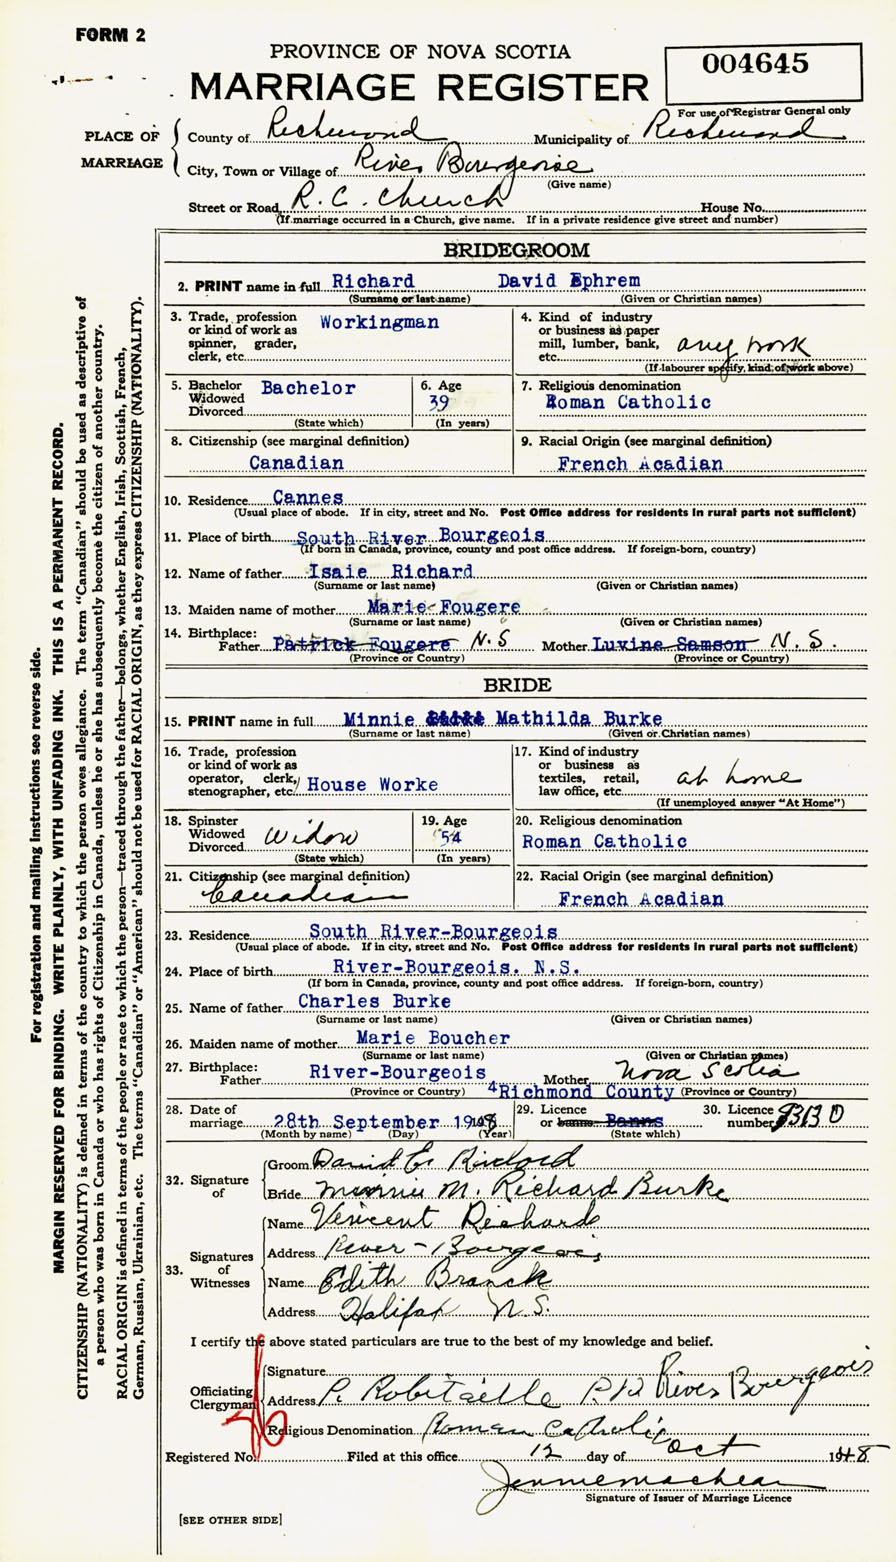 FORM 2
PROVINCE OF NOVA SCOTIA
MARRIAGE REGISTER
004645
For use of Registrar General only
PLACE OF MARRIAGE
County of Richmond Municipality of Richmond
City, Town or Village of River Bourgeoise
(Give name)
Street or Road R. C. Church House No.
(If marriage occurred in a Church, give name. If in a private residence give street and number)
BRIDEGROOM
2. PRINT name in full Richard David Ephrem
(Surname or last name) (Given or Christian names)
3. Trade, profession or kind of work as spinner, grader, clerk, etc. Workingman
4. Kind of industry or business as paper mill, lumber, bank, etc. any work
(If labourer specify, kind of work above)
5. Bachelor Widowed Divorced Bachelor
(State which)
6. Age 39
(In years)
7. Religious denomination
Roman Catholic
8. Citizenship (see marginal definition)
Canadian
9. Racial Origin (see marginal definition)
French Acadian
10. Residence Cannes
(Usual place of abode. If in city, street and No. Post Office address for residents in rural parts not sufficient)
11. Place of birth South River Bourgeois
(If born in Canada, province, county and post office address. If foreign-born, country)
12. Name of father Isaie Richard
(Surname or last name) (Given or Christian names)
13. Maiden name of mother Marie Fougere
(Surname or last name) (Given or Christian names)
14. Birthplace:
Father Patrick Fougere N.S Mother Luvine Samson N.S.
(Province or Country) (Province or Country)
BRIDE
15. PRINT name in full Minnie Mathilda Burke
(Surname or last name) (Given or Christian names)
16. Trade, profession or kind of work as operator, clerk, stenographer, etc. House Worke
17. Kind of industry or business as textiles, retail, law office, etc. at home
(If unemployed answer "At Home")
18. Spinster Widowed Divorced Widow
(State which)
19. Age 54
(In years)
20. Religious denomination
Roman Catholic
21. Citizenship (see marginal definition)
Canadian
22. Racial Origin (see marginal definition)
French Acadian
23. Residence South River-Bourgeois
(Usual place of abode. If in city, street and No. Post Office address for residents in rural parts not sufficient)
24. Place of birth River-Bourgeois. N.S.
(If born in Canada, province, county and post office address. If foreign-born, country)
25. Name of father Charles Burke
(Surname or last name) (Given or Christian names)
26. Maiden name of mother Marie Boucher
(Surname or last name) (Given or Christian names)
27. Birthplace:
Father River-Bourgeois Mother Nova Scotia
(Province or Country) Richmond County (Province or Country)
28. Date of marriage 28th September 1948
(Month by name) (Day) (Year)
29. Licence or banns Banns
(State which)
30. Licence number
32. Signature of
Groom David E. Richard
Bride Minnie M. Richard Burke
33. Signatures of Witnesses
Name Vincent Richard
Address River-Bourgeois
Name Edith Branck
Address Halifax N.S.
I certify the above stated particulars are true to the best of my knowledge and belief.
Officiating Clergyman
Signature
Address P. Robitaille P.P. River Bourgeois
Religious Denomination Roman Catholic
Registered No. Filed at this office 12 day of Oct 1948
Jennie MacLean
Signature of Issuer of Marriage Licence
[SEE OTHER SIDE]
For registration and mailing instructions see reverse side.
MARGIN RESERVED FOR BINDING. WRITE PLAINLY, WITH UNFADING INK. THIS IS A PERMANENT RECORD.
CITIZENSHIP (NATIONALITY) is defined in terms of the country to which the person owes allegiance. The term "Canadian" should be used as descriptive of
a person who was born in Canada or who has rights of Citizenship in Canada, unless he or she has subsequently become the citizen of another country.
RACIAL ORIGIN is defined in terms of the people or race to which the person—traced through the father—belongs, whether English, Irish, Scottish, French,
German, Russian, Ukrainian, etc. The terms "Canadian" or "American" should not be used for RACIAL ORIGIN, as they express CITIZENSHIP (NATIONALITY).